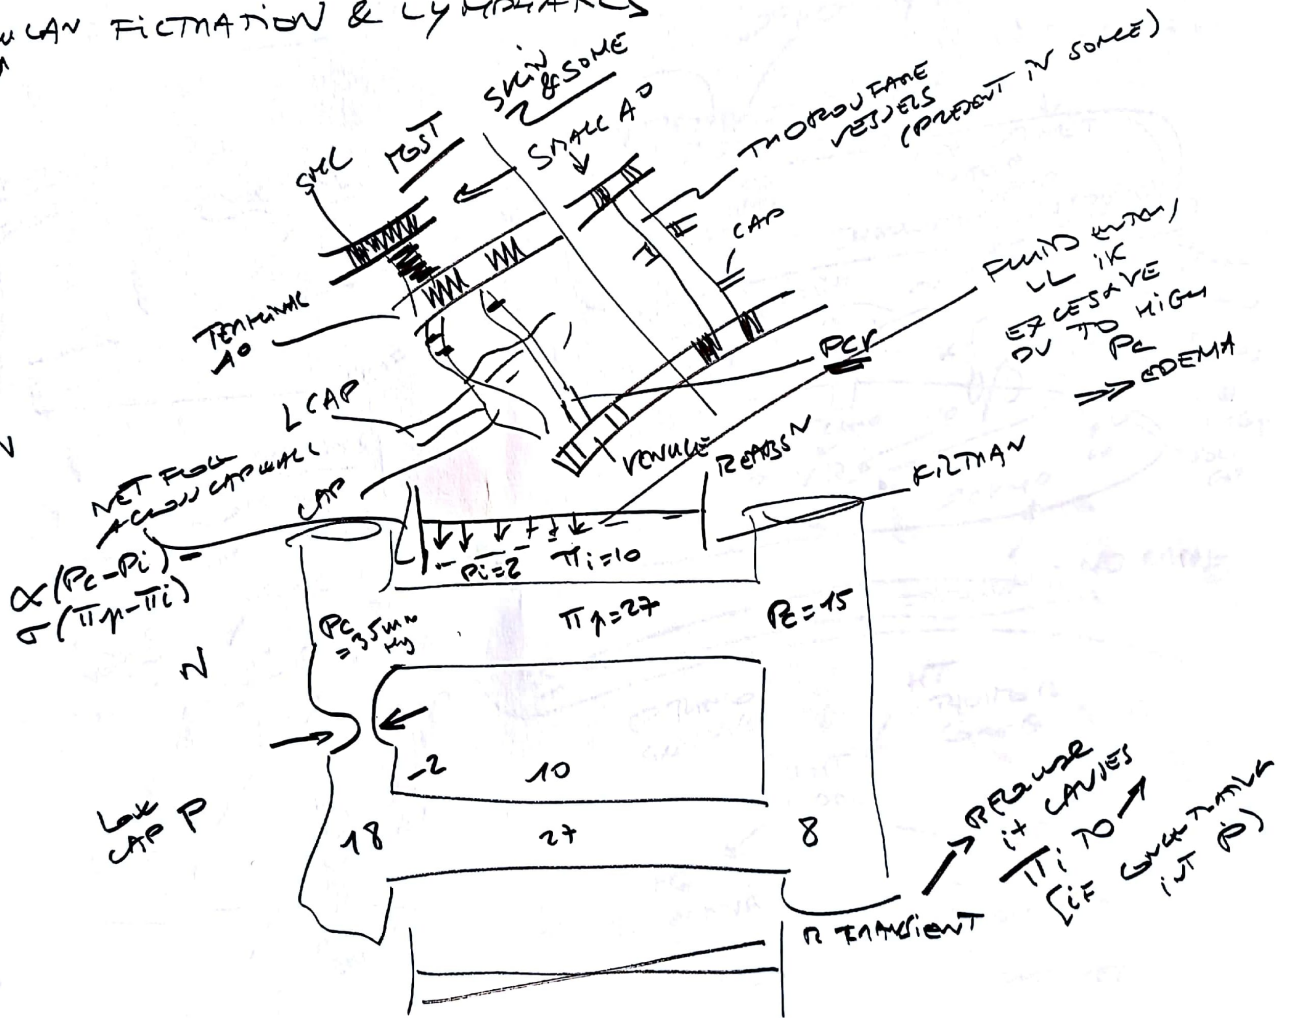 FILTRATION & LYMPHATICS
SKIN
& SOME
MOST
SMALL A°
THOROUFARE
VESSELS
(PRESENT IN SOME)
CAP
TERMINAL
A°
L CAP
FLUID ENTRY
EXCESSIVE
DV TO HIGH
Pc
⇒ EDEMA
VENULE
REABS N
NET FLOW
ACROSS CAP WALL
CAP
∝ (Pc-Pi) -
σ (Πp-Πi)
Pi=2 Πi=10
Pc
=35mm
Hg
Πp=27
Pc=15
N
-2 10
LOW
CAP P
18 27 8
R TRANSIENT
BECAUSE
it CAUSES
Πi TO ↗